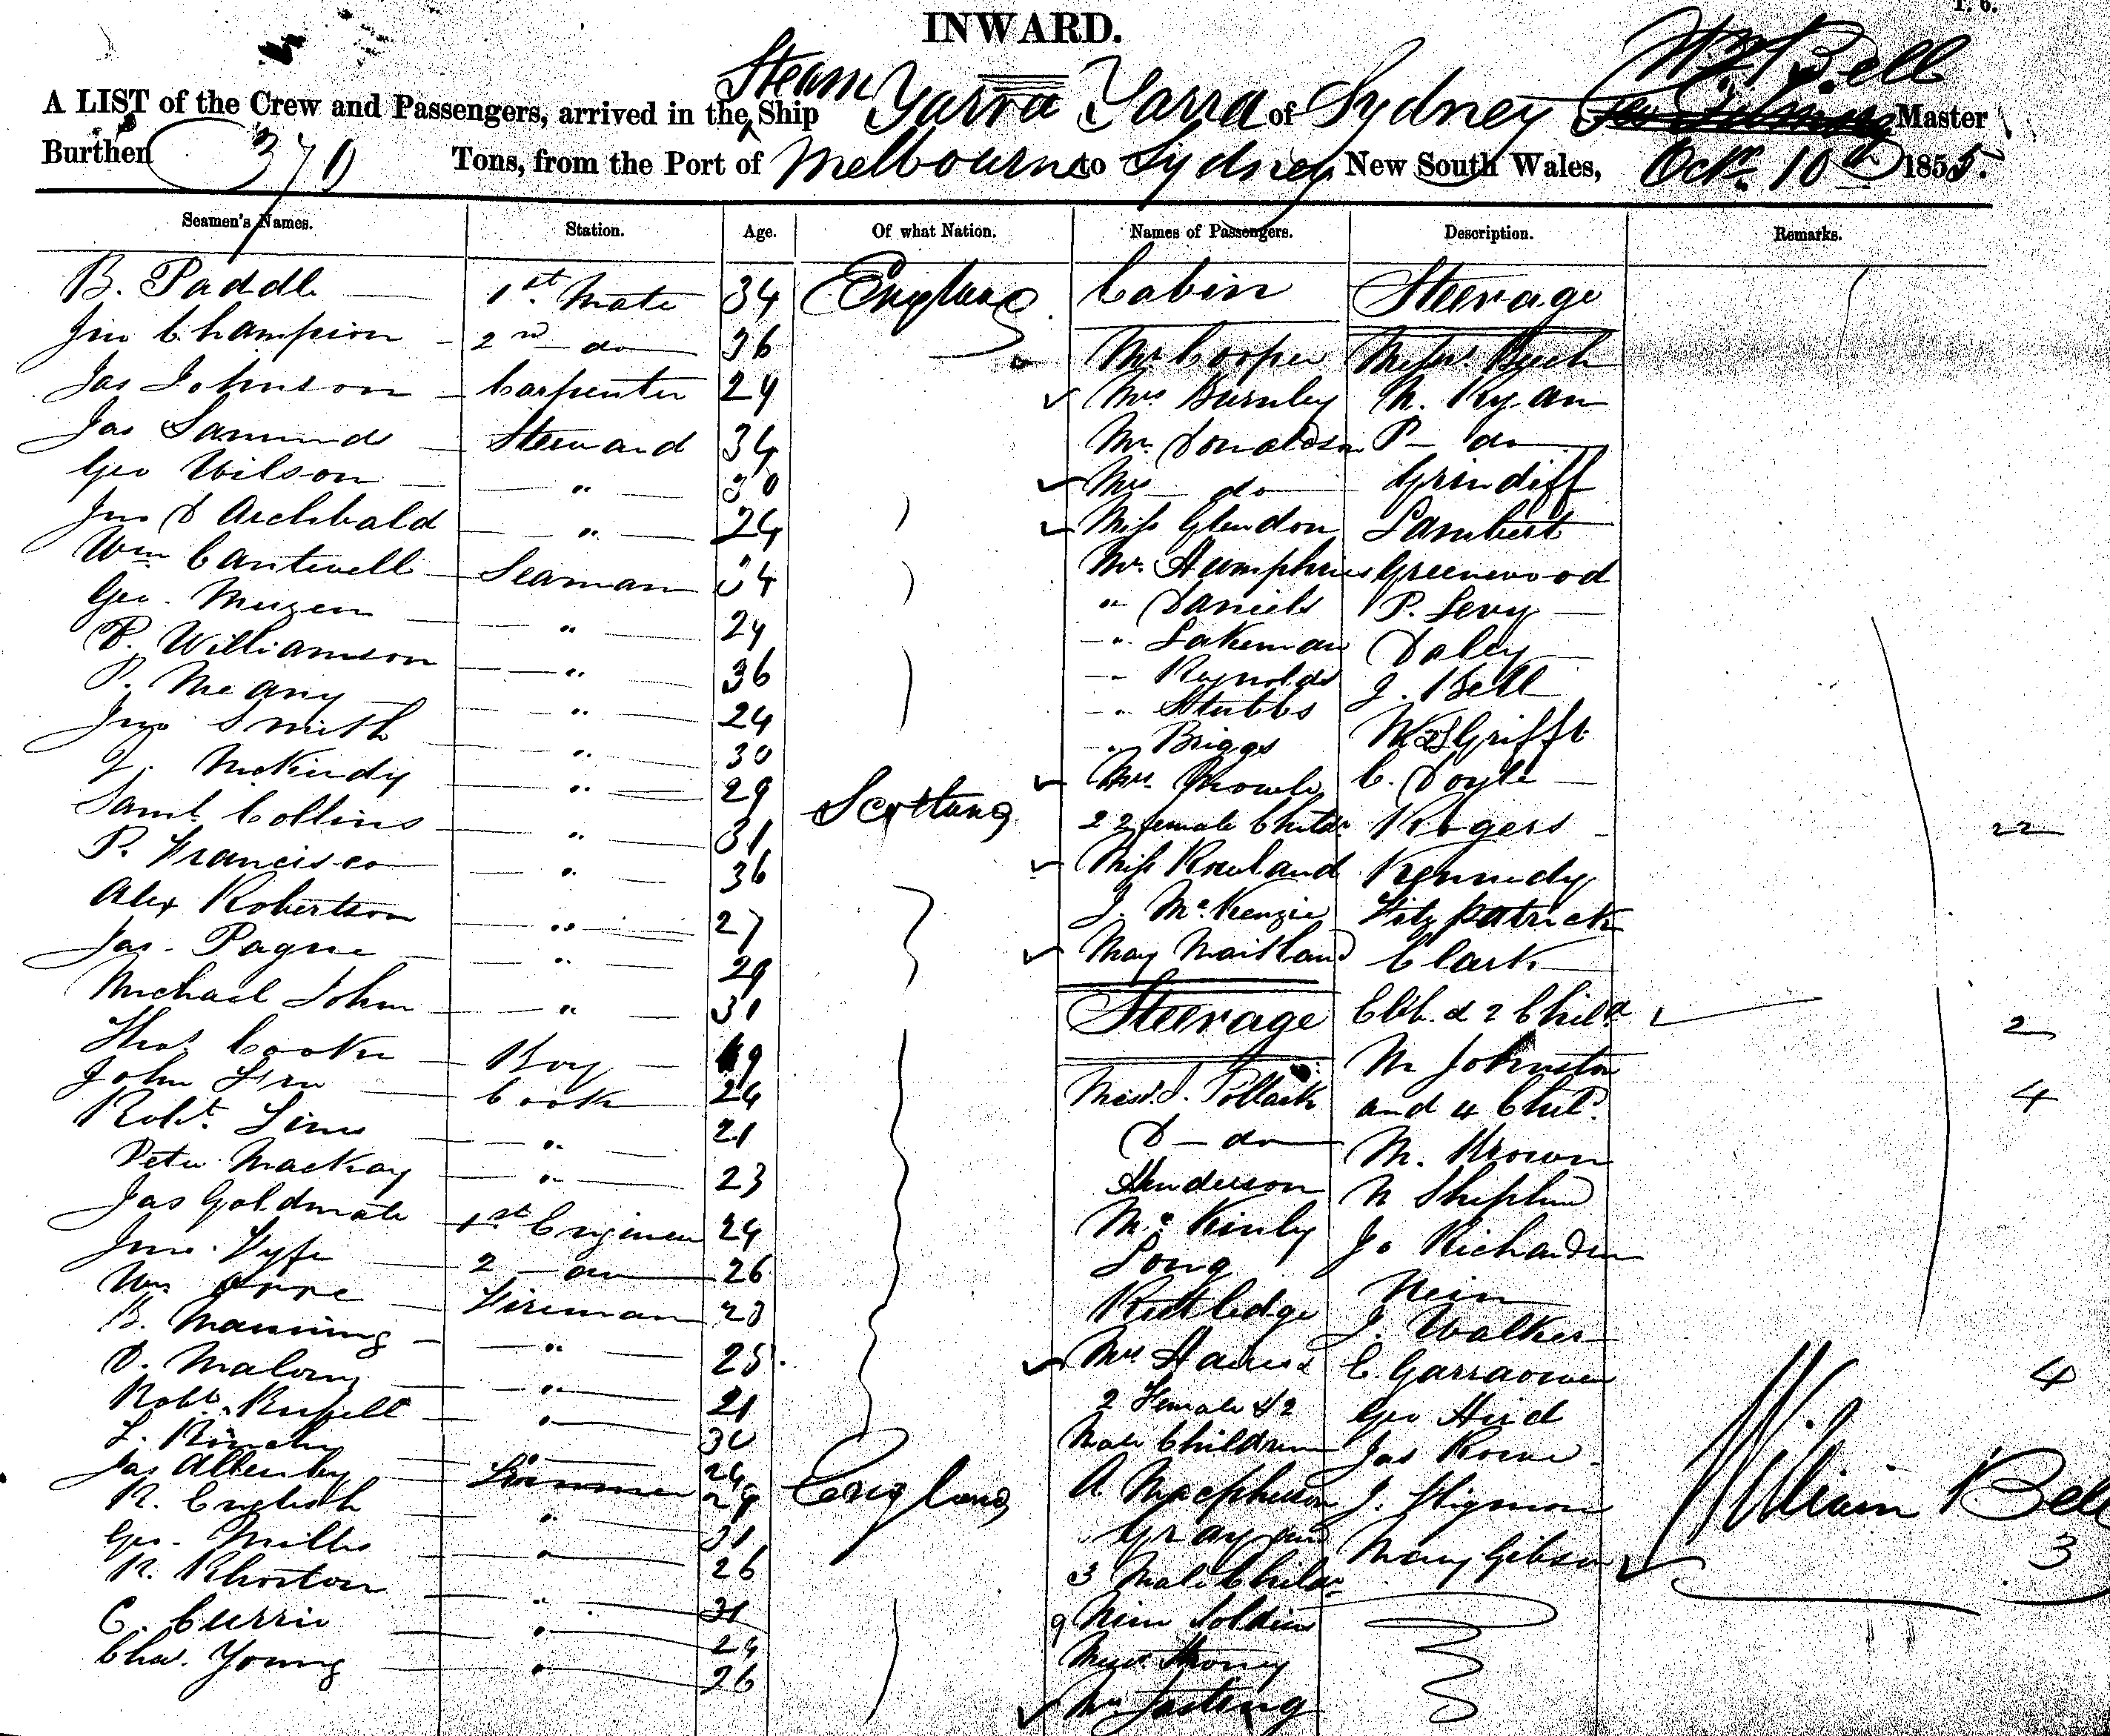 INWARD.
A LIST of the Crew and Passengers, arrived in the Steam Ship Yarra Yarra of Sydney Wm Bell Master
Burthen 370 Tons, from the Port of Melbourne to Sydney New South Wales, Octr. 10th 1855.
Seamen's Names. Station. Age. Of what Nation. Names of Passengers. Description. Remarks.
B. Paddle 1st. Mate 34 England Cabin Steerage
Jno Champion 2nd do 36 Mr Cooper Messrs.
Jas Johnson Carpenter 29 Mrs Burnley M. Ryan
Jas Steward 34 Mr. Donaldson P do
Geo Wilson " 30 Mrs do Grindiff
Jno D Archbald " 24 Miss Glendon Lambert
Wm Cantwell Seaman 34 Mr. Humphries Greenwood
Geo. " 29 " Daniels P. Levy
P. Williamson " 36 " Lakeman Daley
P. Meany " 24 " Reynolds J. Bell
Jno Smith " 30 " Stubbs
" Briggs
J. " 29 Scotland Mrs. C. Doyle
Saml. Collins " 31 2 2 female Childn Rogers 22
P. Francisco " 36 Miss Rowland Kennedy
Alex Robertson " 27 J. McKenzie Fitzpatrick
Jas. Pagne " 29 May Maitland Clark
Michael John " 31 Steerage & 2 Child 2
Thos. Cooker Boy 19 M Johnston
John Cook 24 Messrs. J. Pollack and 4 Chil 4
Robt. Sims " 21 D do M. Brown
Peter Mackay " 23 Henderson
Jas Goldmate 1st Engineer 24 McKinly Jo Richardson
Jno. Fyfe 2 do 26 Long Nein
Wm Fireman 28 Rutledge J. Walker
B. Manning " 25 Mrs & C. Garraowen 4
D. Malony " 21 2 Female & 2 Geo Hird
Robt. Russell " 30 Male Children Jas Rowe
L. " 24
Jas Allenby 29 England A Macpherson J. William Bell
R. English " 31 Gray and Mary Gibson
Geo. Mills " 26 3 Male Childn 3
R. Rhorton " 31 9 Nine Soldiers
C. Currie " 24 Messrs.
Chas. Young " 26 Mrs